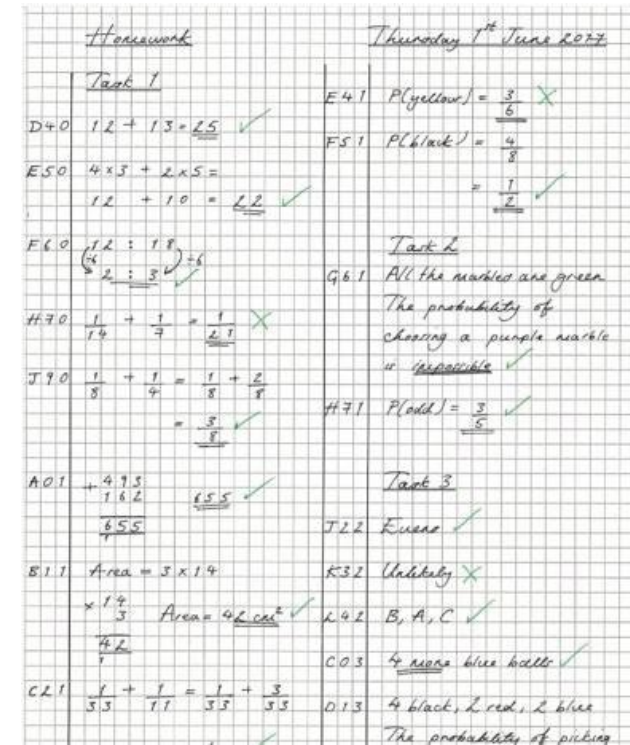 Homework
Thursday 1st June 2017
Task 1
D40 12 + 13 = 25 ✓
E50 4×3 + 2×5 =
12 + 10 = 22 ✓
F60 12 : 18
÷6 ÷6
2 : 3 ✓
H70 1/14 + 1/7 = 1/21 ✗
J90 1/8 + 1/4 = 1/8 + 2/8
= 3/8 ✓
A01 + 493
162 655 ✓
655
1
B11 Area = 3 × 14
× 14
3 Area = 42 cm² ✓
42
1
C21 1/33 + 1/11 = 1/33 + 3/33
E41 P(yellow) = 3/6 ✗
F51 P(black) = 4/8
= 1/2 ✓
Task 2
G61 All the marbles are green
The probability of
choosing a purple marble
is impossible ✓
H71 P(odd) = 3/5 ✓
Task 3
J22 Evens ✓
K32 Unlikely ✗
L42 B, A, C ✓
C03 4 more blue balls ✓
D13 4 black, 2 red, 2 blue
The probability of picking